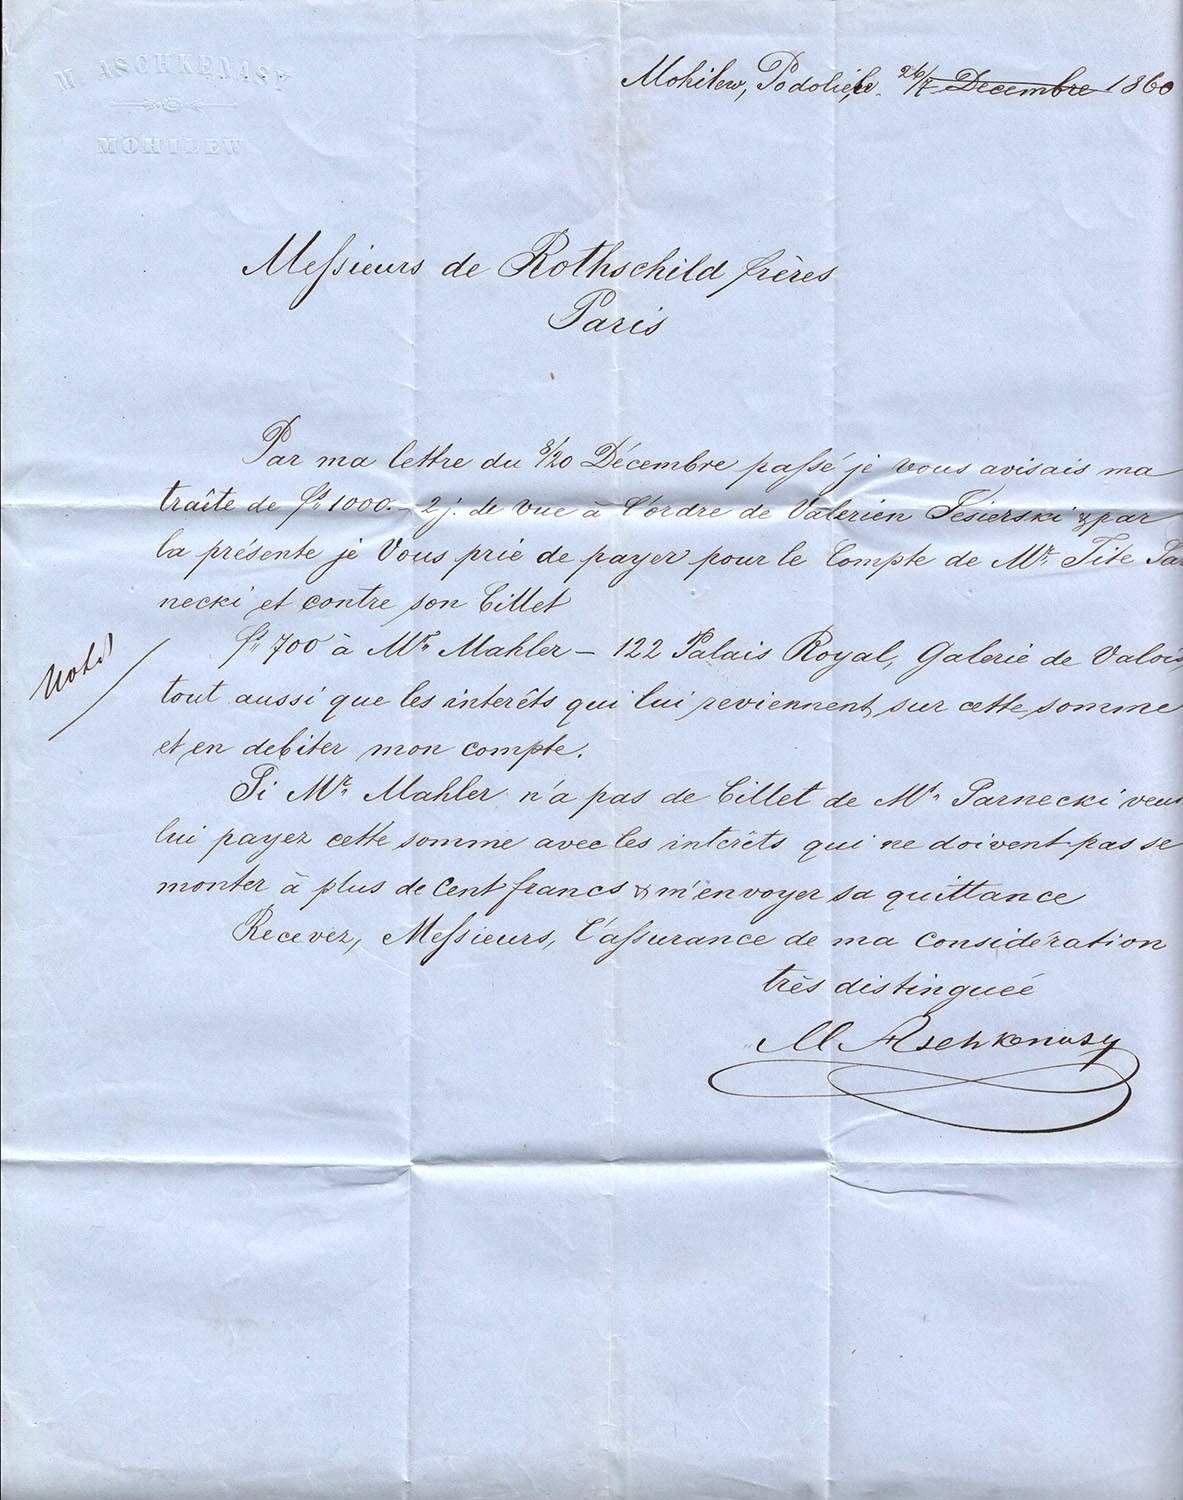 M ASCHKENASY
MOHILEW
Mohilew, Podolie, le 26/7 Decembre 1860
Messieurs de Rothschild frères
Paris
Par ma lettre du 8/20 Décembre passé je vous avisais ma
traîte de fr 1000.– 2 j. de vue à l'ordre de Valerien Sesierski & par
la présente je Vous prie de payer pour le Compte de Mr. Tite Sar
necki et contre son billet
fr 700 à Mr. Mahler – 122 Palais Royal, Galerie de Valois,
tout aussi que les interêts qui lui reviennent sur cette somme
et en debiter mon compte.
Si Mr. Mahler n'a pas de billet de Mr. Sarnecki
lui payez cette somme avec les interêts qui ne doivent pas se
monter à plus de Cent francs & m'envoyer sa quittance
Recevez, Messieurs, l'assurance de ma considération
très distinguée
M Aschkenasy